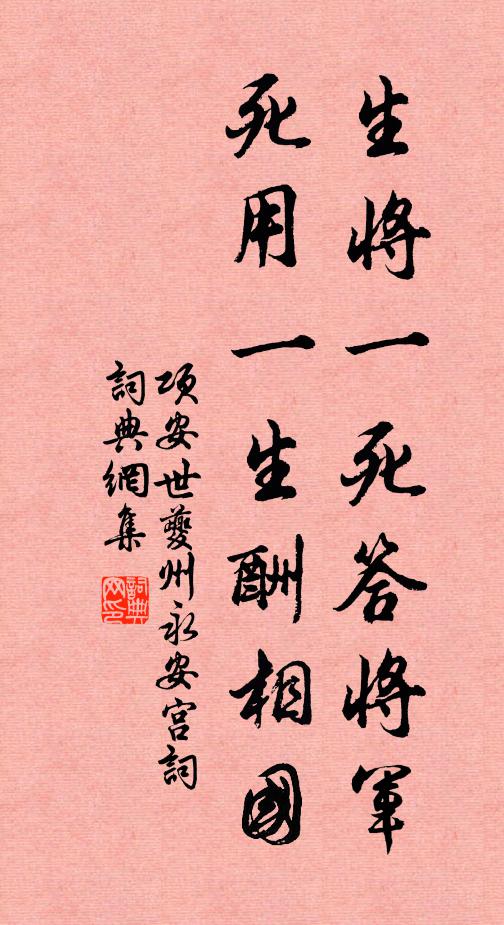 生將一死答將軍
死用一生酬相國
項安世夔州永安宮詞
詞典網集
詞典网印